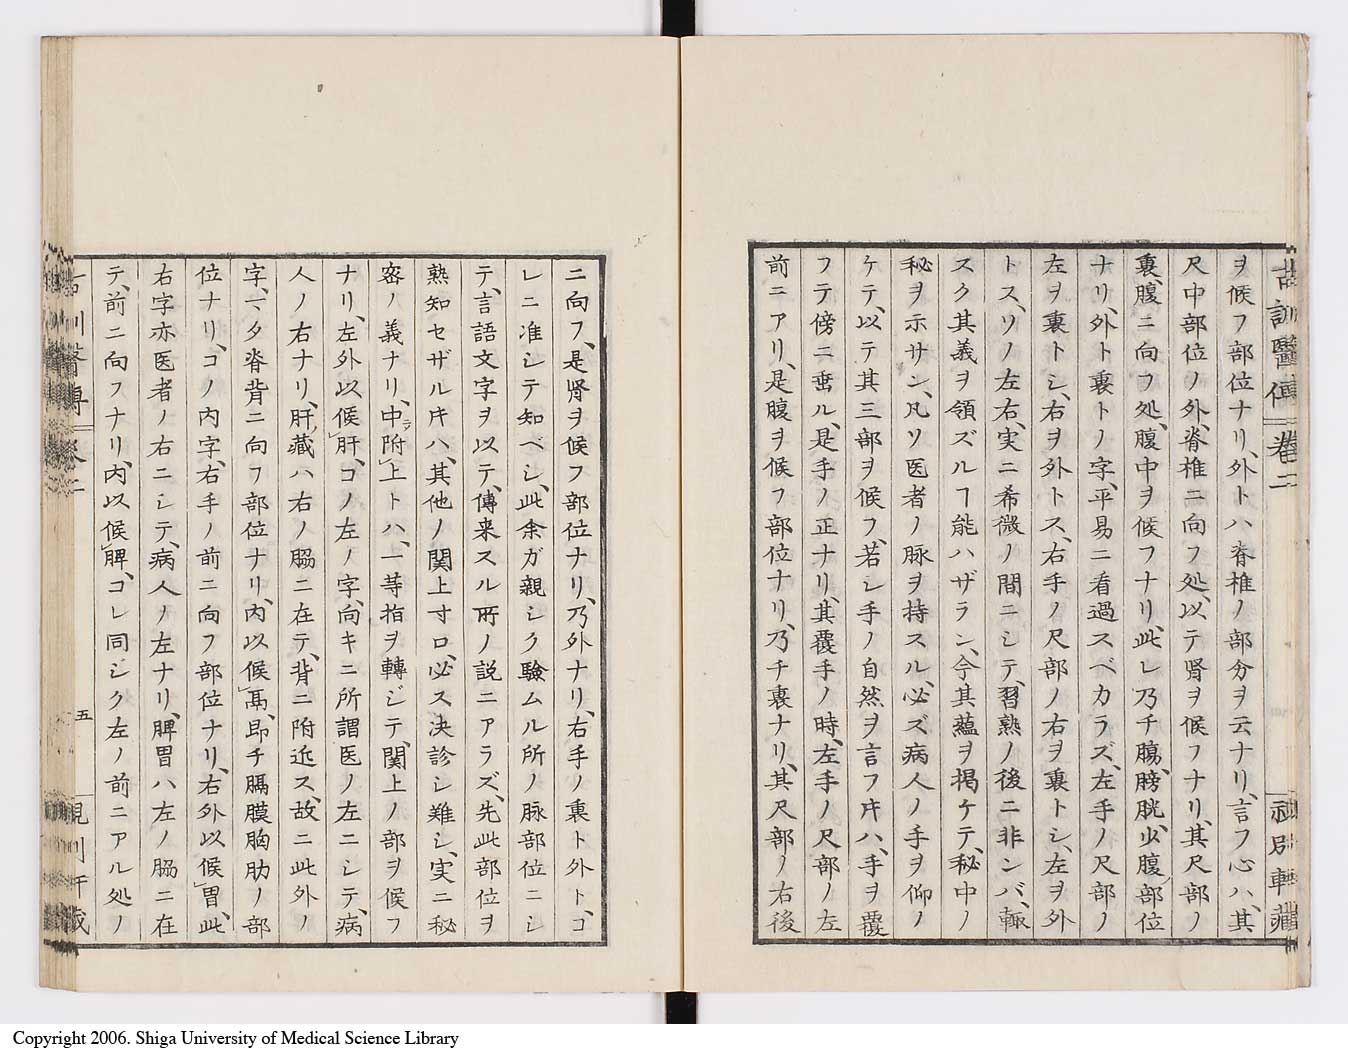 古訓醫傳 卷二
ヲ候フ部位ナリ、外トハ脊椎ノ部分ヲ云ナリ、言フ心ハ、其
尺中部位ノ外、脊椎ニ向フ処、以テ腎ヲ候フナリ、其尺部ノ
裏、腹ニ向フ処、腹中ヲ候フナリ、此レ乃チ腸、膀胱、少腹ノ部位
ナリ、外ト裏トノ字、平易ニ看過スベカラズ、左手ノ尺部ノ
左ヲ裏トシ、右ヲ外トス、右手ノ尺部ノ右ヲ裏トシ、左ヲ外
トス、ソノ左右、実ニ希微ノ間ニシテ、習熟ノ後ニ非ンバ、輙
スク其義ヲ領ズルヿ能ハザラン、今其蘊ヲ掲ケテ、秘中ノ
秘ヲ示サン、凡ソ医者ノ脉ヲ持スル、必ズ病人ノ手ヲ仰ノ
ケテ、以テ其三部ヲ候フ、若シ手ノ自然ヲ言フ片ハ、手ヲ覆
フテ傍ニ埀ル、是手ノ正ナリ、其覆手ノ時、左手ノ尺部ノ左
前ニアリ、是腹ヲ候フ部位ナリ、乃チ裏ナリ、其尺部ノ右後
ニ向フ、是腎ヲ候フ部位ナリ、乃外ナリ、右手ノ裏ト外ト、コ
レニ准シテ知ベシ、此余ガ親シク驗ムル所ノ脉部位ニシ
テ、言語文字ヲ以テ、傳来スル所ノ説ニアラズ、先此部位ヲ
熟知セザル片ハ、其他ノ関上寸口、必ス決診シ難シ、実ニ秘
密ノ義ナリ、中附上トハ、一等指ヲ轉ジテ、関上ノ部ヲ候フ
ナリ、左外以候肝、コノ左ノ字、向キニ所謂医ノ左ニシテ、病
人ノ右ナリ、肝ノ藏ハ右ノ脇ニ在テ、背ニ附近ス、故ニ此外ノ
字、マタ脊背ニ向フ部位ナリ、内以候鬲、即チ膈膜胸肋ノ部
位ナリ、コノ内字、右手ノ前ニ向フ部位ナリ、右外以候胃、此
右字亦医者ノ右ニシテ、病人ノ左ナリ、脾胃ハ左ノ脇ニ在
テ、前ニ向フナリ、内以候脾、コレ同ジク左ノ前ニアル処ノ
五
Copyright 2006. Shiga University of Medical Science Library